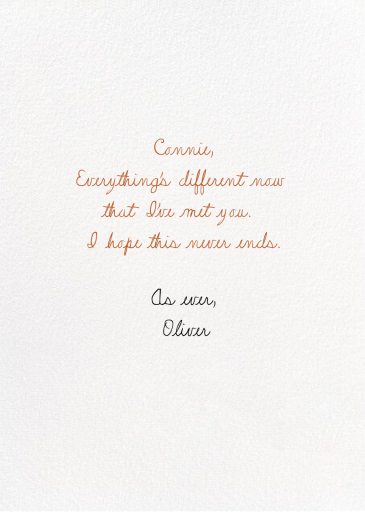 Connie,
Everything's different now
that I've met you.
I hope this never ends.
As ever,
Oliver